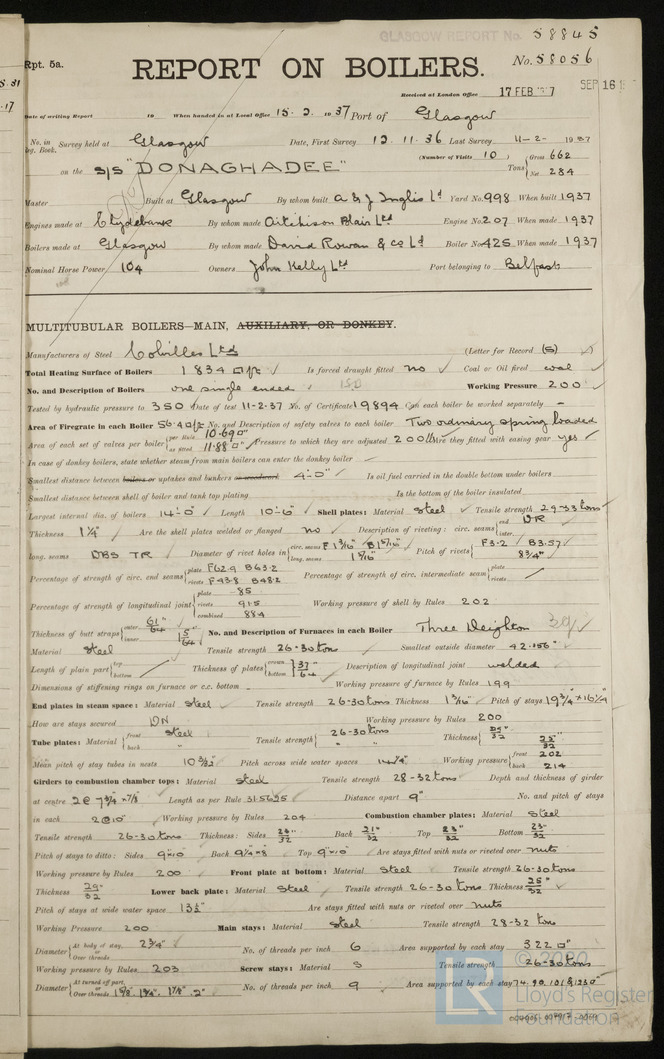 GLASGOW REPORT No. 58845
Rpt. 5a.
No. 58056
REPORT ON BOILERS.
Received at London Office 17 FEB
SEP 16
Date of writing Report 19 When handed in at Local Office 15. 2. 1937 Port of Glasgow
No. in Reg. Book. Survey held at Glasgow Date, First Survey 12. 11. 36 Last Survey 11-2- 1937
(Number of Visits 10)
on the S/S "DONAGHADEE" Tons {Gross 662
Net 284
Master Built at Glasgow By whom built A & J Inglis Ltd Yard No. 998 When built 1937
Engines made at Clydebank By whom made Aitchison Blair Ltd Engine No. 207 When made 1937
Boilers made at Glasgow By whom made David Rowan & Co Ld Boiler No. 425 When made 1937
Nominal Horse Power 104 Owners John Kelly Ltd Port belonging to Belfast
MULTITUBULAR BOILERS—MAIN, AUXILIARY, OR DONKEY.
Manufacturers of Steel Colvilles Ltd (Letter for Record (S) )
Total Heating Surface of Boilers 1834 □ft Is forced draught fitted no Coal or Oil fired coal
No. and Description of Boilers one single ended Working Pressure 200
Tested by hydraulic pressure to 350 Date of test 11-2-37 No. of Certificate 19894 Can each boiler be worked separately -
Area of Firegrate in each Boiler 56.4 □ft No. and Description of safety valves to each boiler Two ordinary spring loaded
Area of each set of valves per boiler {per Rule 10.69□"
as fitted 11.88□" Pressure to which they are adjusted 200 lb Are they fitted with easing gear yes
In case of donkey boilers, state whether steam from main boilers can enter the donkey boiler
Smallest distance between boilers or uptakes and bunkers or woodwork 4'-0" Is oil fuel carried in the double bottom under boilers
Smallest distance between shell of boiler and tank top plating Is the bottom of the boiler insulated
Largest internal dia. of boilers 14'-0" Length 10'-6" Shell plates: Material Steel Tensile strength 29-33 tons
Thickness 1¼" Are the shell plates welded or flanged no Description of riveting: circ. seams {end DR
inter.
long. seams DBS TR Diameter of rivet holes in {circ. seams F 1 3/16" B 1 5/16"
long. seams 1 5/16" Pitch of rivets {F 3.2 B 3.57
8¾"
Percentage of strength of circ. end seams {plate F 62.9 B 63.2
rivets F 43.8 B 48.2 Percentage of strength of circ. intermediate seam {plate
rivets
Percentage of strength of longitudinal joint {plate 85
rivets 91.5
combined 88.4 Working pressure of shell by Rules 202
Thickness of butt straps {outer 61/64"
inner 1 5/64 No. and Description of Furnaces in each Boiler Three Deighton
Material Steel Tensile strength 26-30 tons Smallest outside diameter 42.156"
Length of plain part {top
bottom Thickness of plates {crown
bottom 37/64 Description of longitudinal joint welded
Dimensions of stiffening rings on furnace or c.c. bottom Working pressure of furnace by Rules 199
End plates in steam space: Material Steel Tensile strength 26-30 tons Thickness 1 3/16" Pitch of stays 19¾" × 16¼"
How are stays secured DN Working pressure by Rules 200
Tube plates: Material {front Steel
back " Tensile strength {26-30 tons
" " Thickness {25"/32
25"/32
Mean pitch of stay tubes in nests 10 3/32" Pitch across wide water spaces 14¼" Working pressure {front 202
back 214
Girders to combustion chamber tops: Material Steel Tensile strength 28-32 tons Depth and thickness of girder
at centre 2@ 7¾" × 7/8" Length as per Rule 31.5625 Distance apart 9" No. and pitch of stays
in each 2@10" Working pressure by Rules 204 Combustion chamber plates: Material Steel
Tensile strength 26-30 tons Thickness: Sides 23"/32 Back 21"/32 Top 23"/32 Bottom 23"/32
Pitch of stays to ditto: Sides 9"×10 Back 9¼"×8 Top 9"×10 Are stays fitted with nuts or riveted over nuts
Working pressure by Rules 200 Front plate at bottom: Material Steel Tensile strength 26-30 tons
Thickness 25"/32 Lower back plate: Material Steel Tensile strength 26-30 tons Thickness 25"/32
Pitch of stays at wide water space 13½" Are stays fitted with nuts or riveted over nuts
Working Pressure 200 Main stays: Material Steel Tensile strength 28-32 tons
Diameter {At body of stay, 2¾"
or
Over threads No. of threads per inch 6 Area supported by each stay 322□"
Working pressure by Rules 203 Screw stays: Material S Tensile strength 26-30 tons
Diameter {At turned off part,
or
Over threads 1 5/8" 1¾" 1 7/8" 2" No. of threads per inch 9 Area supported by each stay 74. 90. 101 & 123□"
© 2020
LR
Lloyd's Register
Foundation